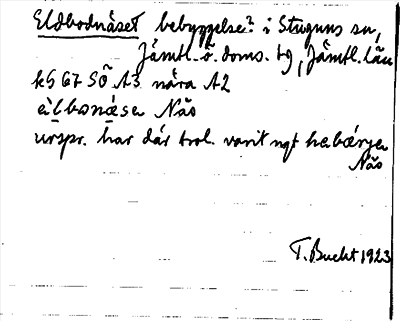 Eldbodnäset bebyggelse? i Stuguns sn,
Jämtl. ö. doms. tg, Jämtl. län
kS 67 SÖ A3 nära A2
Näs
urspr. har där trol. varit ngt
Näs
T. Bucht 1923